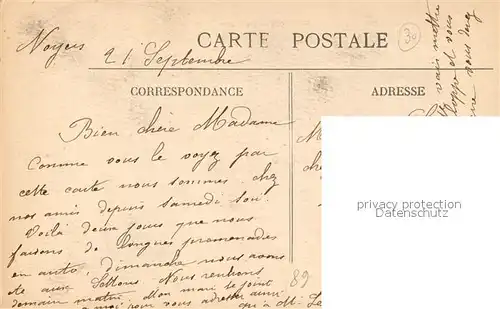 Noyers
21 Septembre
CARTE POSTALE
30
CORRESPONDANCE
ADRESSE
Bien chère Madame
Comme vous le voyez par
cette carte nous sommes chez
nos amis depuis samedi soir.
Voilà deux jours que nous
faisons de longues promenades
en auto, dimanche nous avons
été aux Settons. Nous rentrons
demain matin. Mon mari se joint
à moi pour vous adresser ainsi
qu'à Mr
89
vais mettre
et vous
vous
privacy protection
Datenschutz